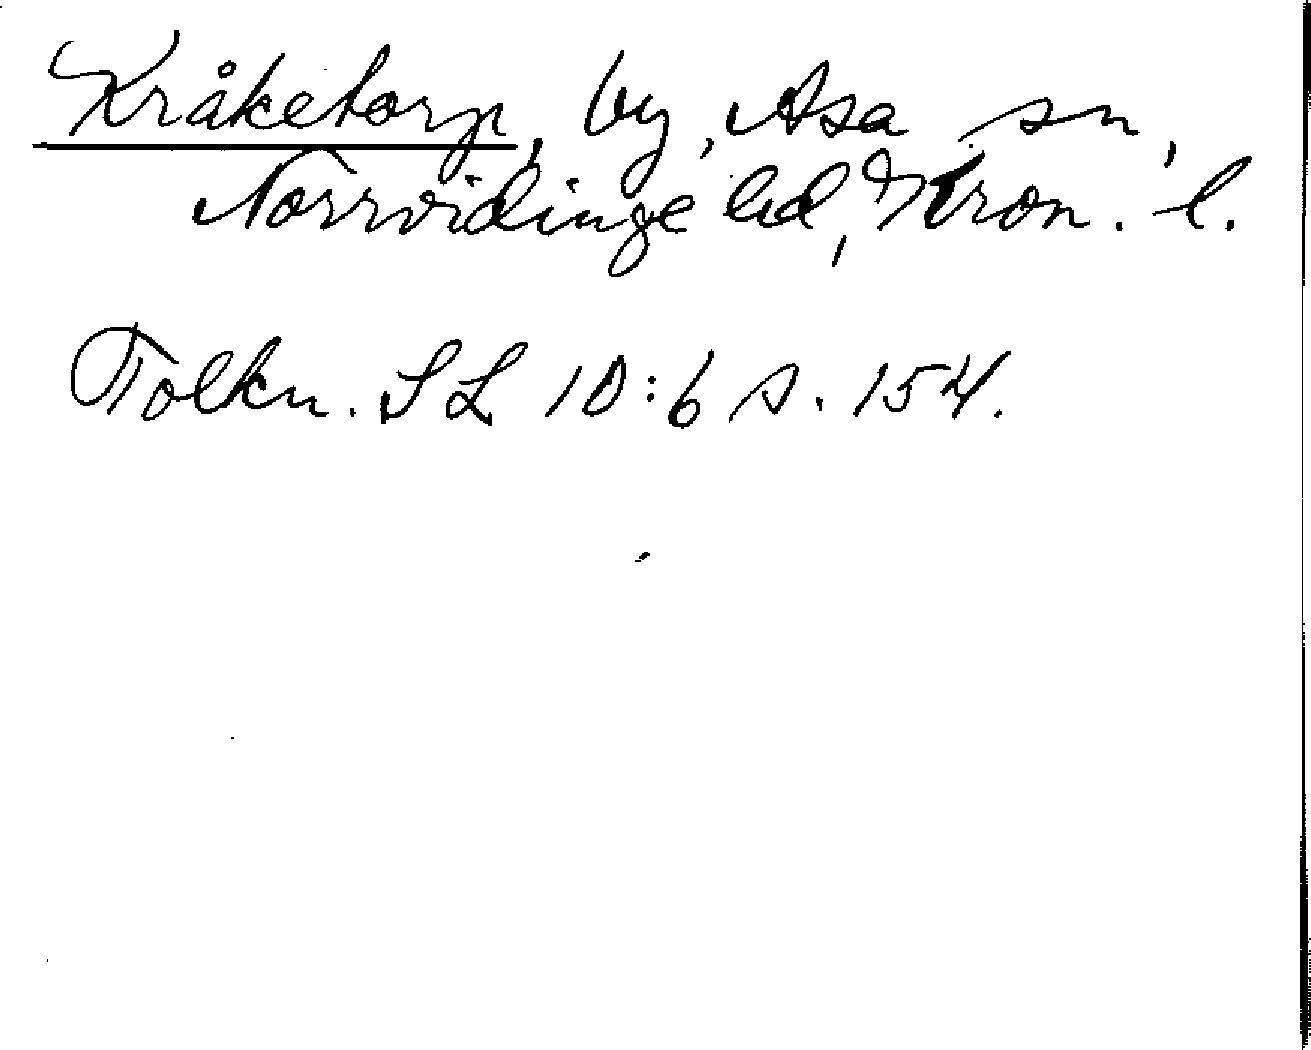 Kråketorp, by, Asa sn,
Norrvidinge hd, Kron. l.
Tolkn. SL 10:6 s. 154.